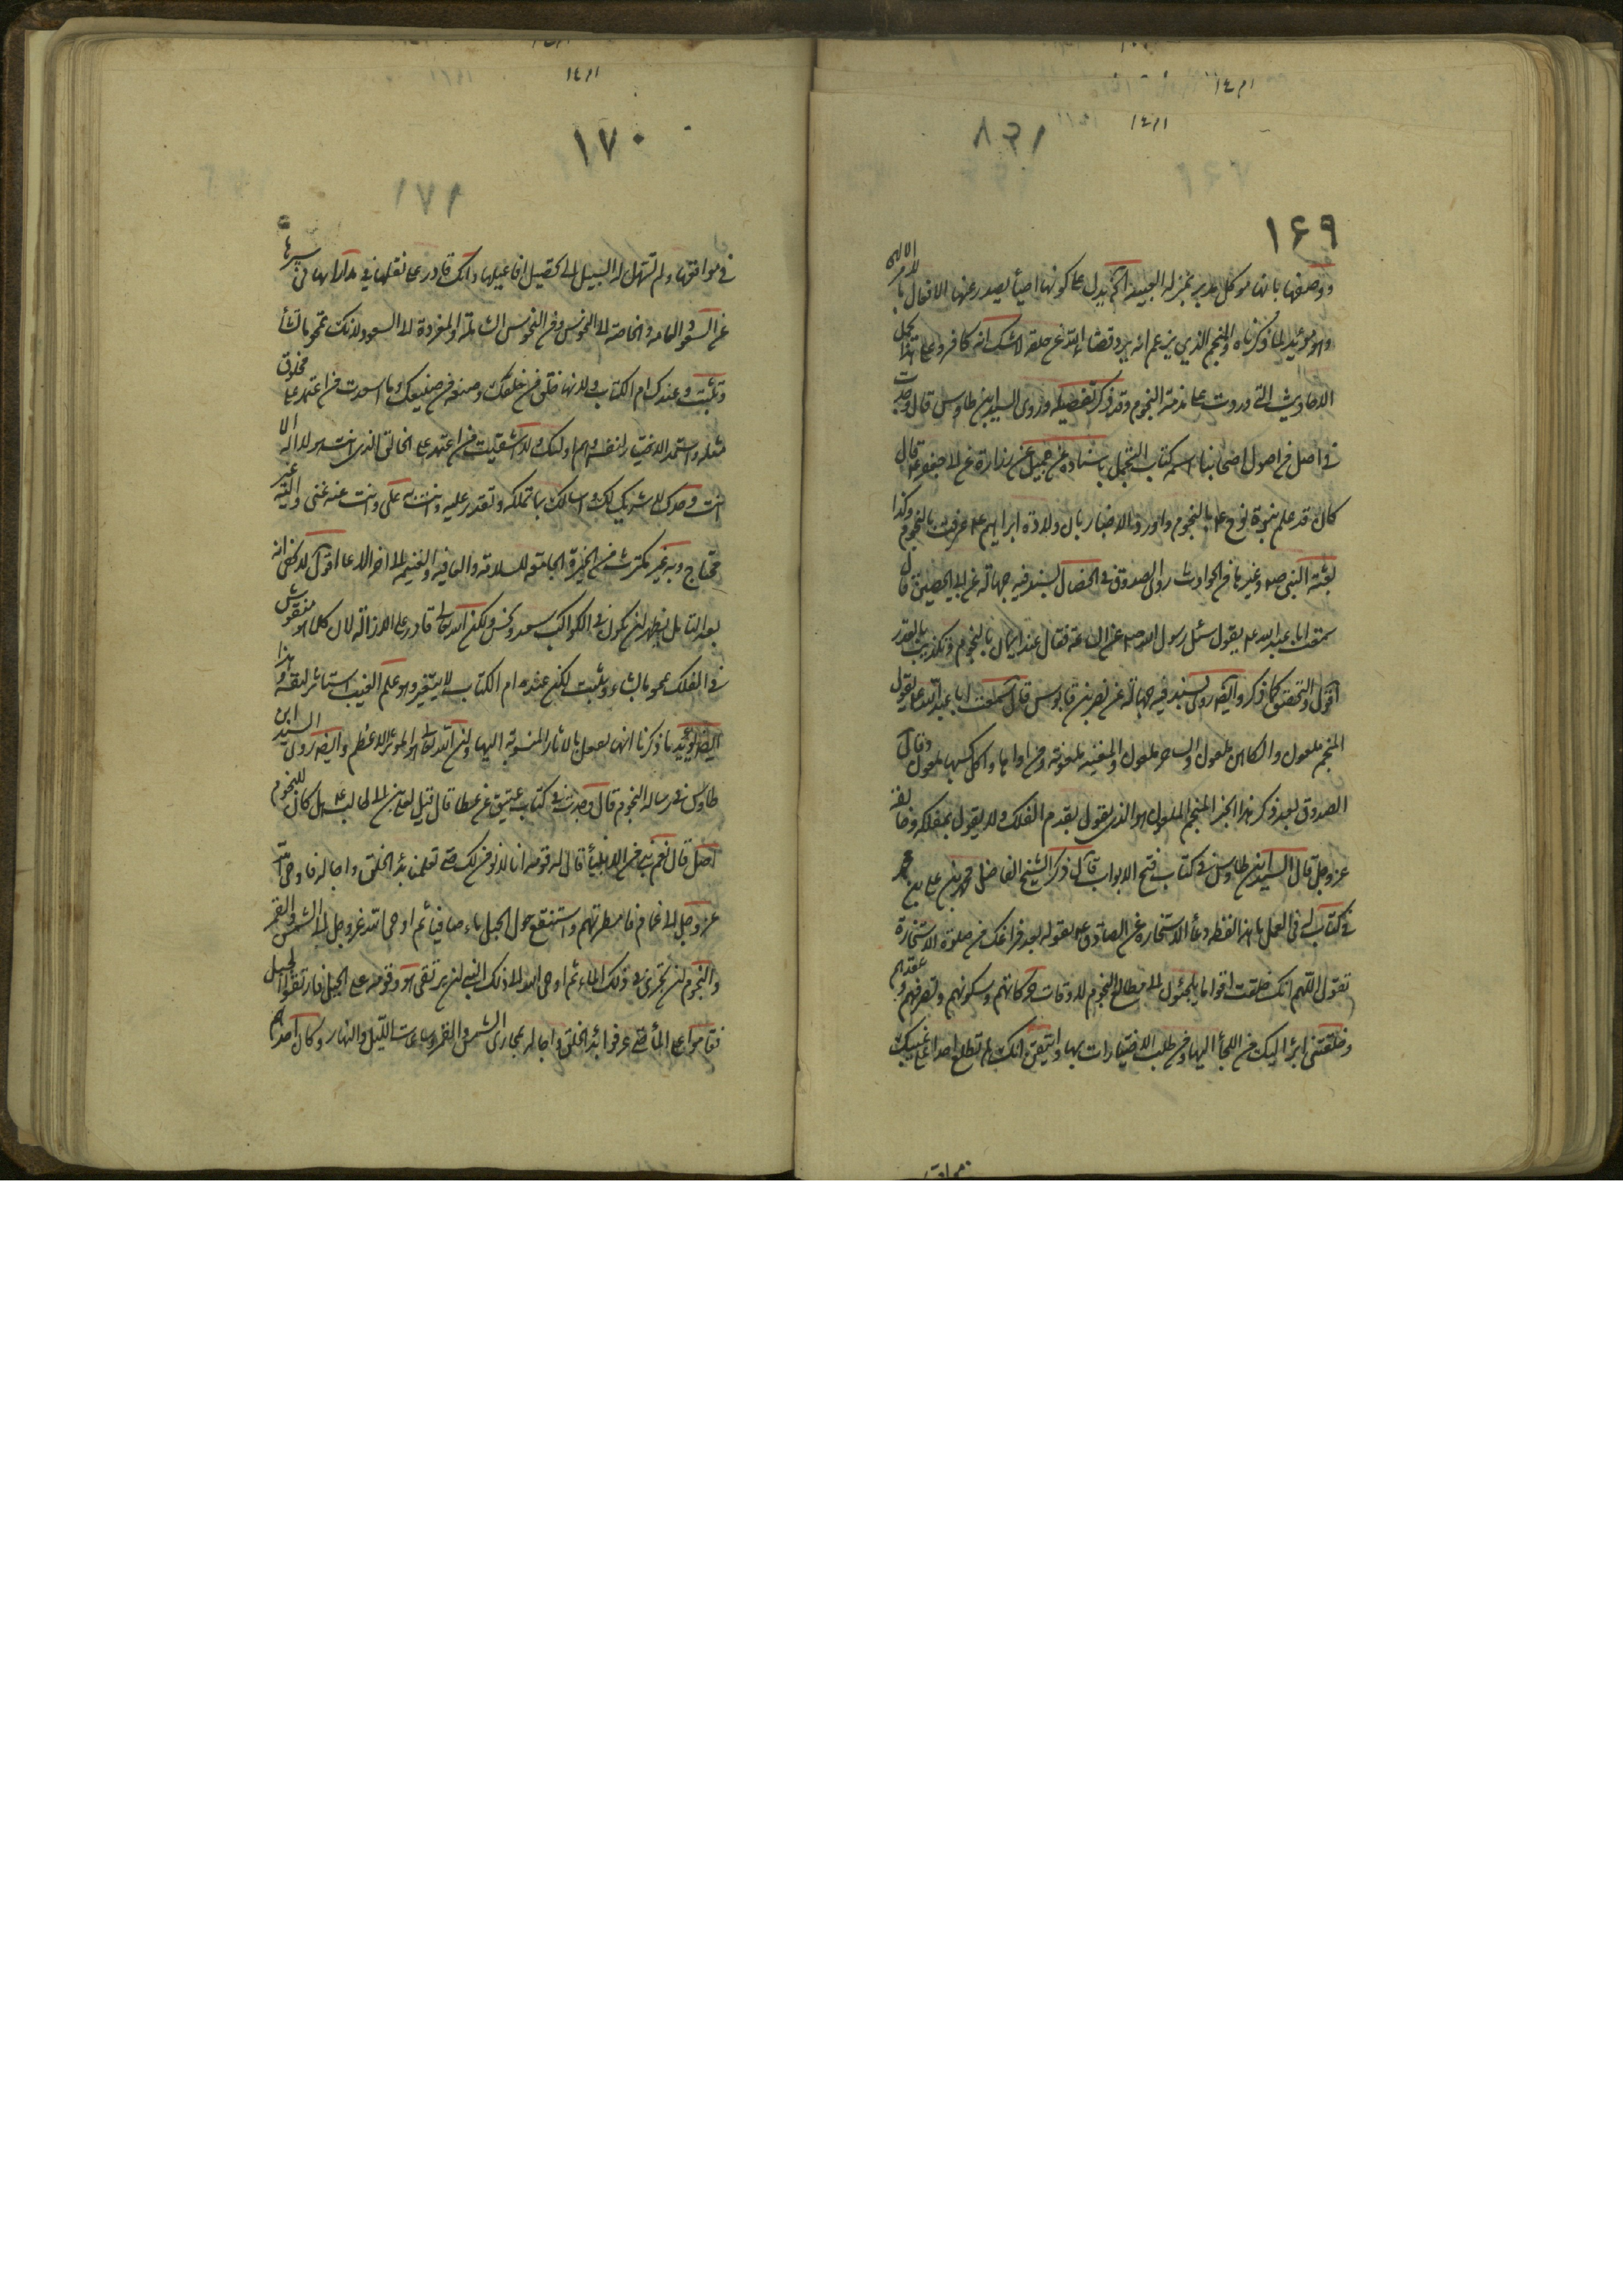 ١٦٩
ووصفها بانها موكل مدبر بمنزلة العبيد الخ يدل على كونها احياء يصدر عنها الافعال با
وهو مؤيد لما ذكرناه والمنجم الذي يزعم انه يرد قضاء الله عن خلقه لا شك انه كافر وعلى هذا يحمل
الاحاديث التي وردت على مذمة النجوم وقد ذكر تفصيله وروى السيد ابن طاوس قال وجدت
في اصل من اصول اصحابنا اسمه كتاب التجمل باسناده عن جميل عن زرارة عن ابي جعفر ع قال
كان قد علم نبوة نوح ع بالنجوم واورد الاخبار بان ولادة ابراهيم ع عرفت بالنجوم وكذا
بعثة النبي ص وغيرها من الحوادث روى الصدوق في الخصال بسند فيه جهالة عن ابي الحصين قال
سمعت ابا عبد الله ع يقول سئل رسول الله ص عن الساعة فقال عند ايمان بالنجوم وتكذيب بالقدر
اقول والتحقيق كما ذكر وايضا روى بسند فيه جهالة عن نصر بن قابوس قال سمعت ابا عبد الله ع يقول
المنجم ملعون والكاهن ملعون والساحر ملعون والمغنية ملعونة ومن اواها واكل كسبها ملعون وقال
الصدوق بعد ذكر هذا الخبر المنجم الملعون هو الذي يقول بقدم الفلك ولا يقول بمفلكه وخالقه
عز وجل قال السيد ابن طاوس في كتاب فتح الابواب قال ذكر الشيخ الفاضل محمد بن علي بن محمد
في كتاب له في العمل ما هذا لفظه دعاء الاستخارة عن الصادق ع يقوله بعد فراغك من صلوة الاستخارة
تقول اللهم انك خلقت اقواما يلجئون الى مطالع النجوم لاوقات حركاتهم وسكونهم وتصرفهم وعقدهم
وخلقتني ابرأ اليك من اللجأ اليها ومن طلب الاختيارات بها واتيقن انك لم تطلع احدا على غيبك
١٧٠
في مواقعها ولم تسهل له السبيل الى تحصيل افاعيلها وانك قادر على نقلها في مداراتها في سيرها
عن السعود العامة والخاصة الى النحوس ومن النحوس الشاملة والمفردة الى السعود لانك تمحو ما تشاء
وتثبت وعندك ام الكتاب ولانها خلق من خلقك وصنعة من صنيعك وما اسعدت من اعتمد على مخلوق
مثله واستمد الاختيار لنفسه وهم اولئك ولا اشقيت من اعتمد على الخالق الذي انت هو لا اله الا
انت وحدك لا شريك لك اسالك بما تملكه وتقدر عليه وانت به ملي وانت عنه غني واليه غير
محتاج وبه غير مكترث من الخيرة الجامعة للسلامة والعافية والغنيمة الى اخر الدعا اقول لا يخفى انه
بعد التامل يظهر ان يكون في الكواكب سعد ونحس ولكن الله تعالى قادر على الازالة لان كلما هو منقوش
في الفلك يمحو ما يشاء ويثبت لكن عنده ام الكتاب لا يتغير وهو علم الغيب استاثر لنفسه وهذا
ايضا يؤيد ما ذكرنا انها تعمل بالاثار المنسوبة اليها وان الله تعالى هو المؤثر الاعظم وايضا روى السيد ابن
طاوس في رسالة النجوم قال وجدت في كتاب عتيق عن عطا قال قيل لعلي بن ابي طالب ع هل كان للنجوم
اصل قال نعم نبي من الانبياء قال له قومه انا لا نؤمن لك حتى تعلمنا بدء الخلق واجاله فاوحى الله
عز وجل الى غمامة فامطرتهم واستنقع حول الجبل ماء صافيا ثم اوحى الله عز وجل الى الشمس والقمر
والنجوم ان تجرى في ذلك الماء ثم اوحى الله الى ذلك النبي ان يرتقي هو وقومه على الجبل فارتقوا الجبل
فقاموا على الماء حتى عرفوا بدء الخلق واجاله بمجاري الشمس والقمر وساعات الليل والنهار وكان احدهم